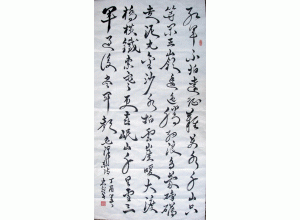 紅軍不怕遠征難萬水千山只
等閒五嶺逶迤騰細浪烏蒙磅礴
走泥丸金沙水拍雲崖暖大渡
橋橫鐵索寒更喜岷山千里雪三
軍過後盡開顏 毛澤東詩 丁酉